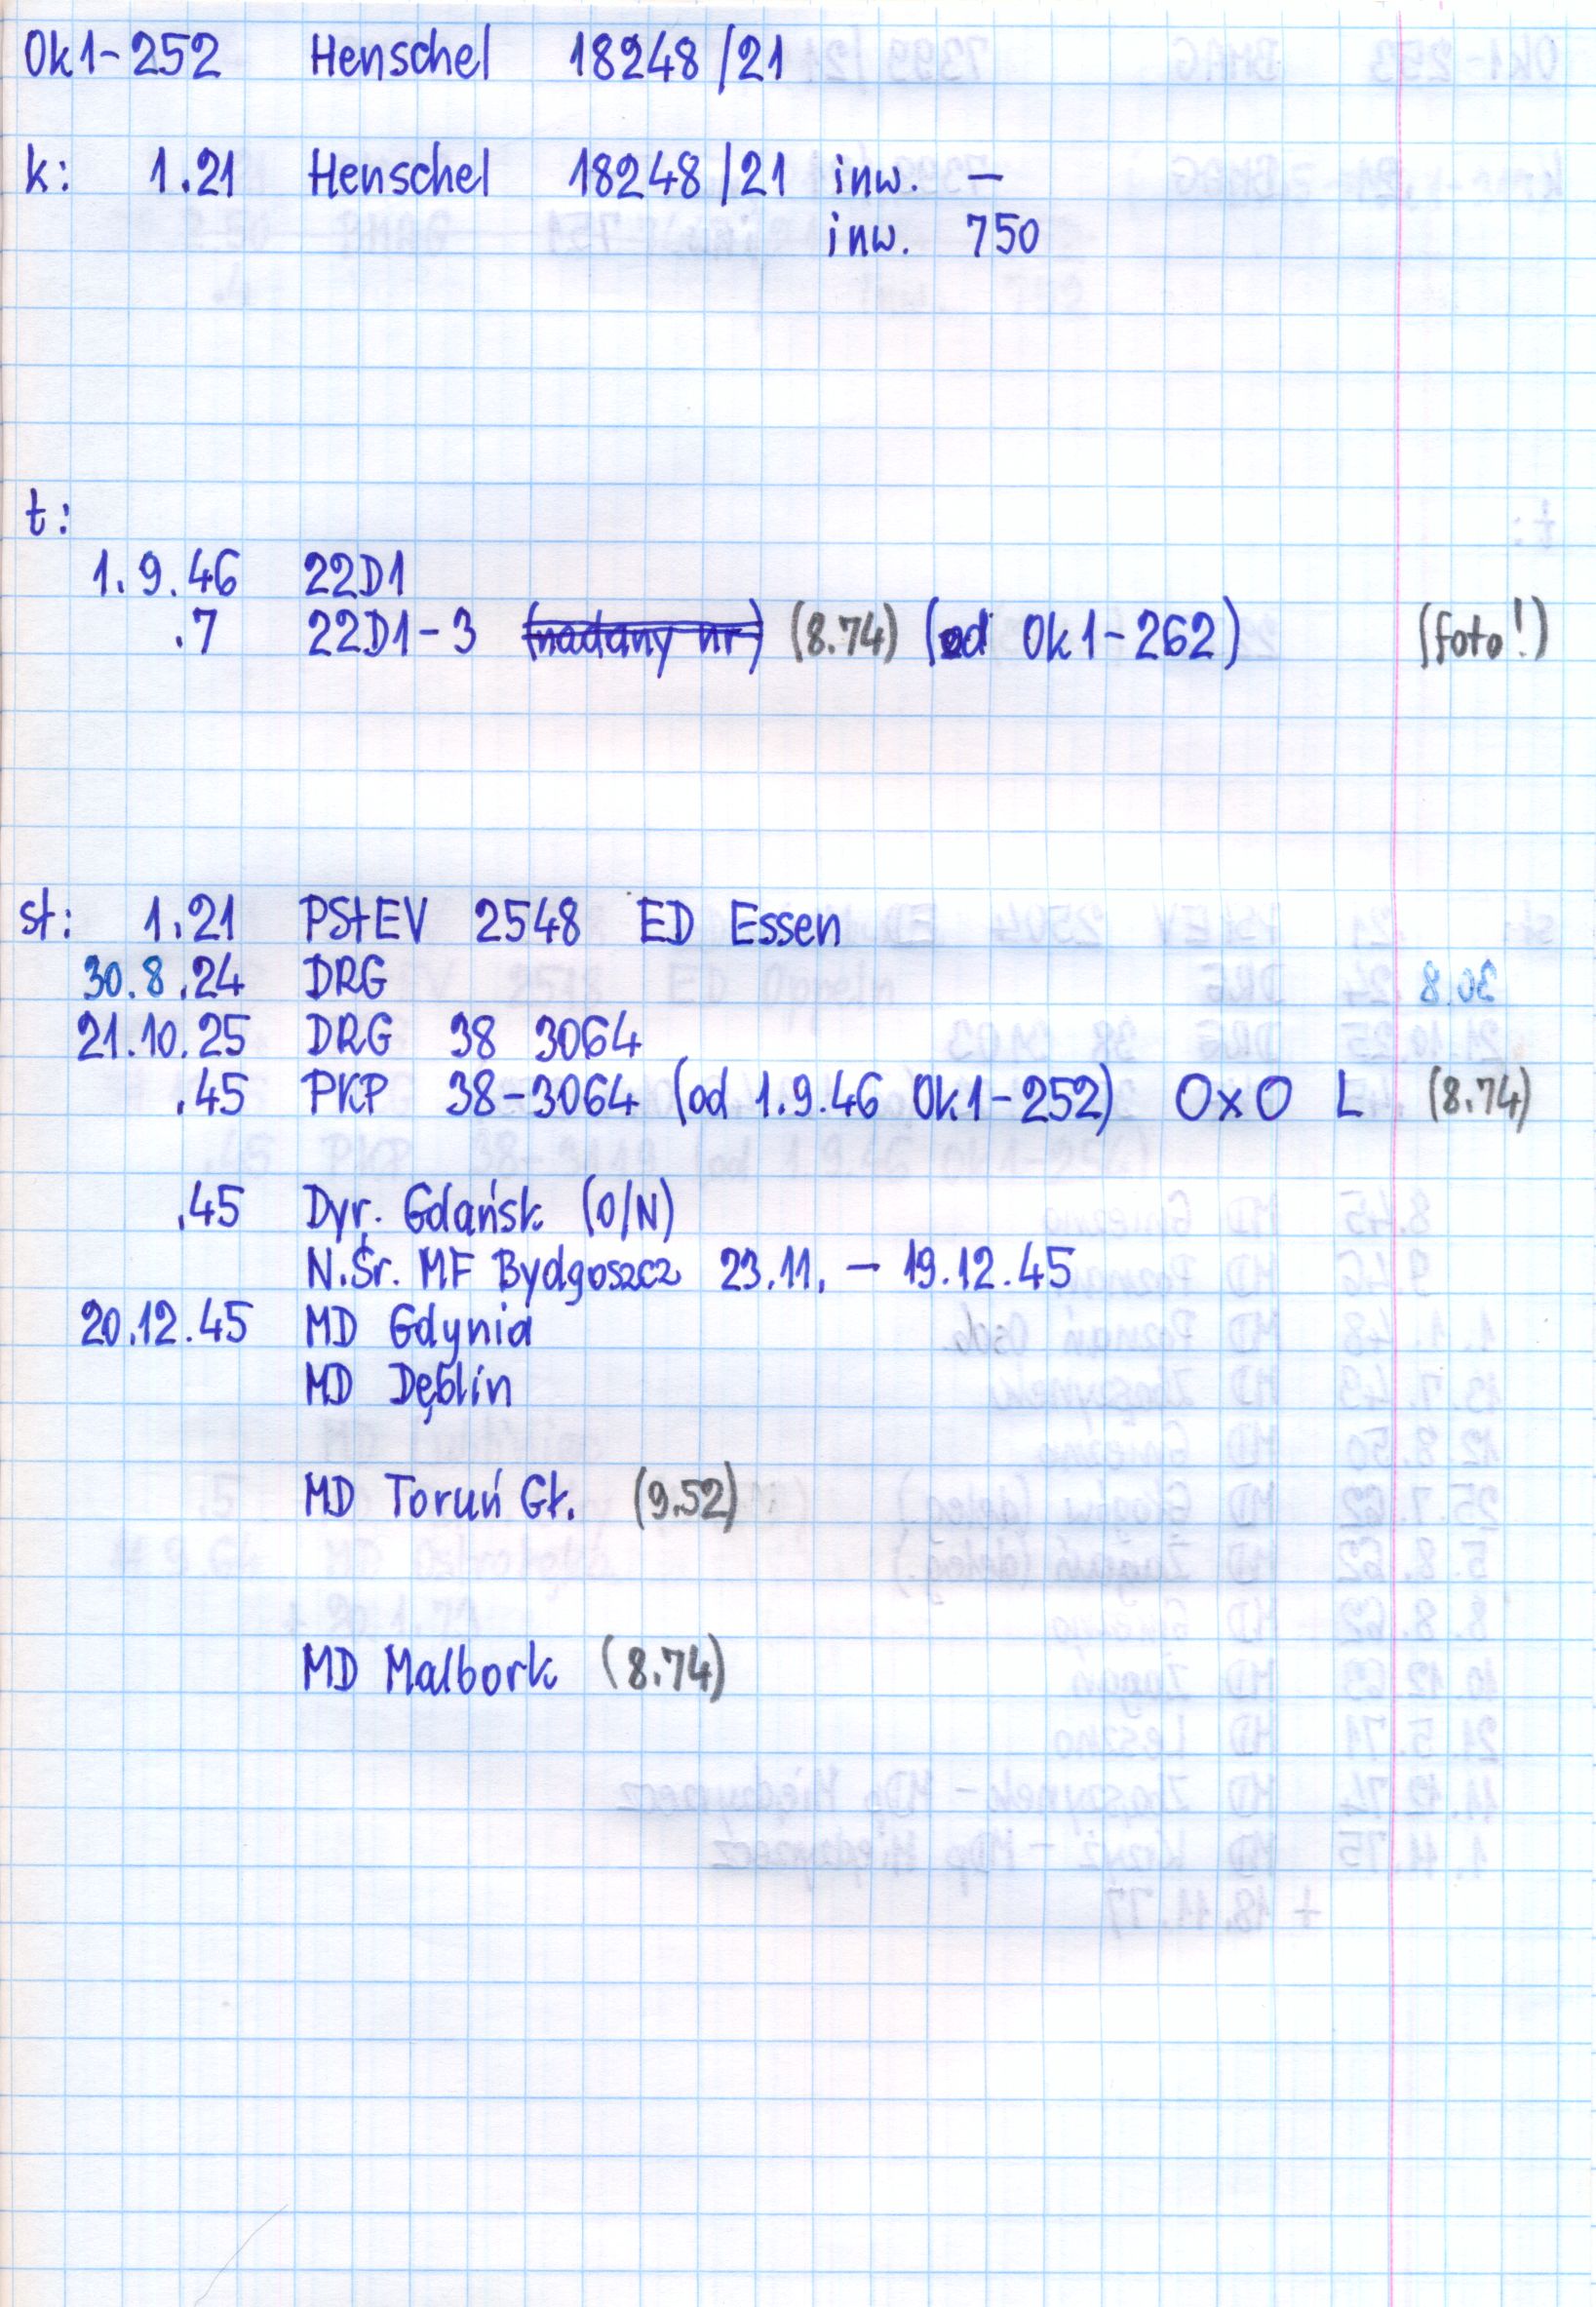 Ok1-252 Henschel 18248/21
k: 1.21 Henschel 18248/21 inw. —
inw. 750
t:
1.9.46 22D1
.7 22D1-3 (nadany nr) (8.74) (od Ok1-262) (foto!)
st: 1.21 PStEV 2548 ED Essen
30.8.24 DRG
21.10.25 DRG 38 3064
.45 PKP 38-3064 (od 1.9.46 Ok1-252) OxO L (8.74)
.45 Dyr. Gdańsk (O/N)
N.Śr. MF Bydgoszcz 23.11. — 19.12.45
20.12.45 MD Gdynia
MD Dęblin
MD Toruń Gł. (9.52)
MD Malbork (8.74)